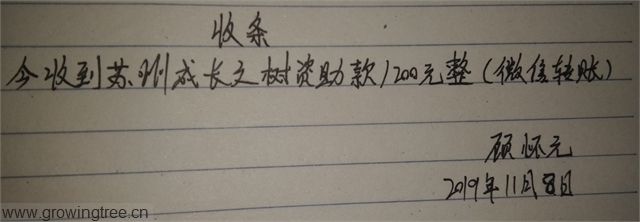 收条
今收到苏州成长之树资助款1200元整(微信转账)
顾怀元
2019年11月8日
www.growingtree.cn